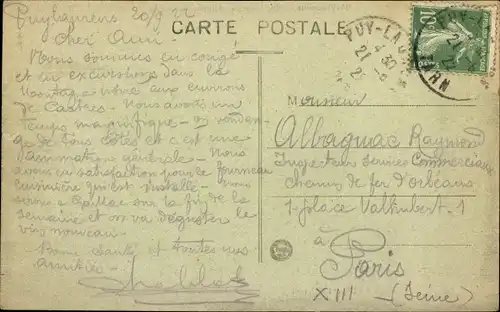 Puylaurens 20/9 22
CARTE POSTALE
Cher Ami
Nous sommes en congé
et en excursions dans la
Montagne noire aux environs
de Castres. Nous avons un
temps magnifique - on vendan-
ge de tous côtés et c'est une
animation générale - Nous
avons eu satisfaction pour le fourneau
cuisinière qui est installé - Nous
serons à Gaillac sur la fin de la
semaine et on va déguster le
vin nouveau -
Bonne santé et toutes nos
amitiés -
PUY-LAURENS
TARN
10
Monsieur
Albagnac Raymond
Inspecteur Services Commerciaux
Chemins de fer d'Orléans
1 - place Valhubert - 1
à
Paris
XIII
(Seine)